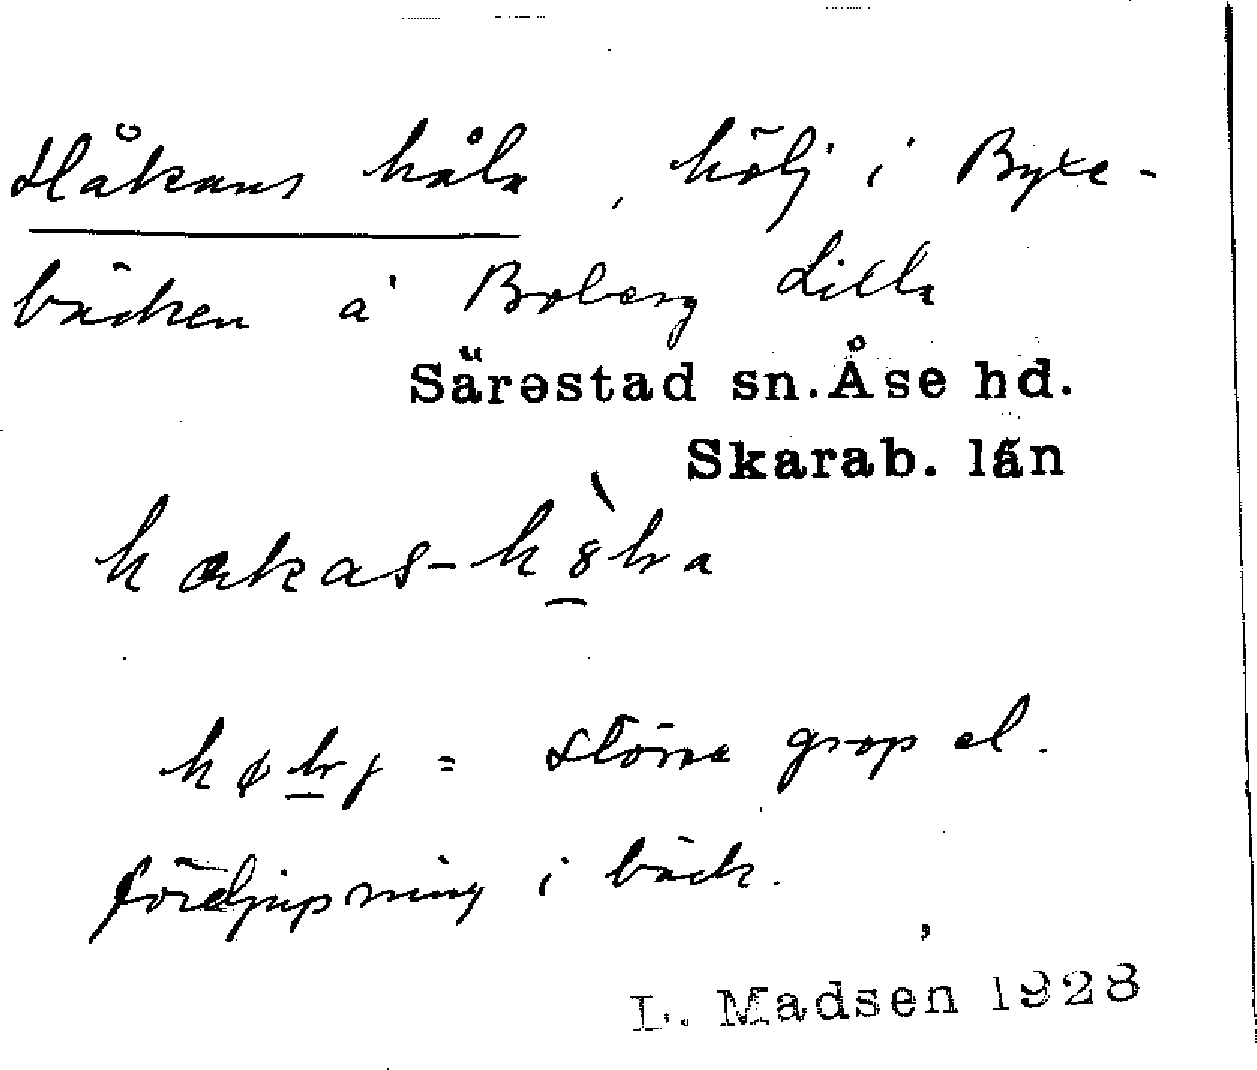 Håkans håla, hölj i Byxe-
bäcken å Boberg Lilla
Särestad sn. Åse hd.
Skarab. län
= större grop el.
fördjupning i bäck.
L. Madsen 1928